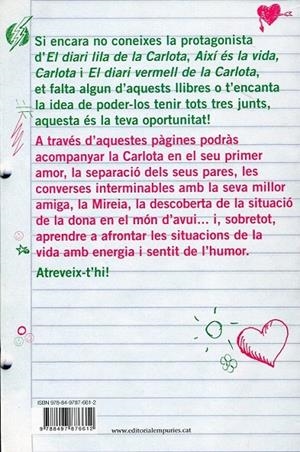 Si encara no coneixes la protagonista
d'El diari lila de la Carlota, Així és la vida,
Carlota i El diari vermell de la Carlota,
et falta algun d'aquests llibres o t'encanta
la idea de poder-los tenir tots tres junts,
aquesta és la teva oportunitat!
A través d'aquestes pàgines podràs
acompanyar la Carlota en el seu primer
amor, la separació dels seus pares, les
converses interminables amb la seva millor
amiga, la Mireia, la descoberta de la situació
de la dona en el món d'avui... i, sobretot,
aprendre a afrontar les situacions de la
vida amb energia i sentit de l'humor.
Atreveix-t'hi!
ISBN 978-84-9787-661-2
9 788497 876612
www.editorialempuries.cat